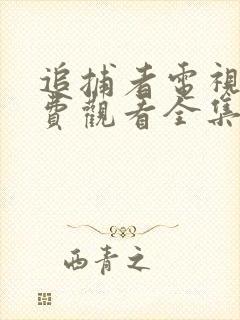 追捕者電視
費觀看全集
西青之